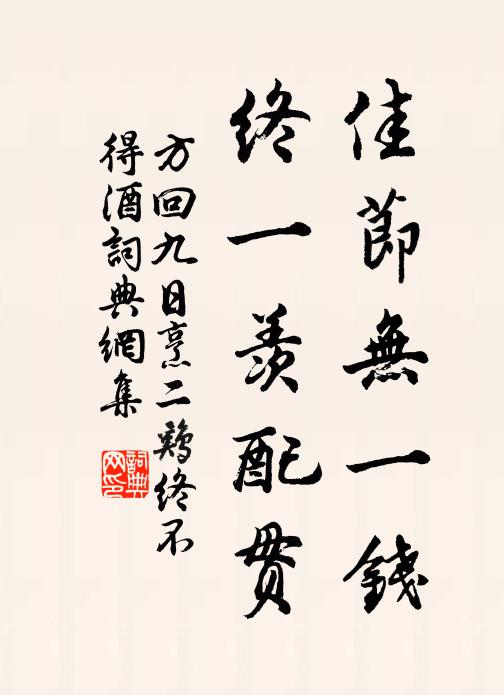 佳節無一錢
終一羨配貫
方回九日烹二鷄終不
得酒詞典網集
詞典
网印